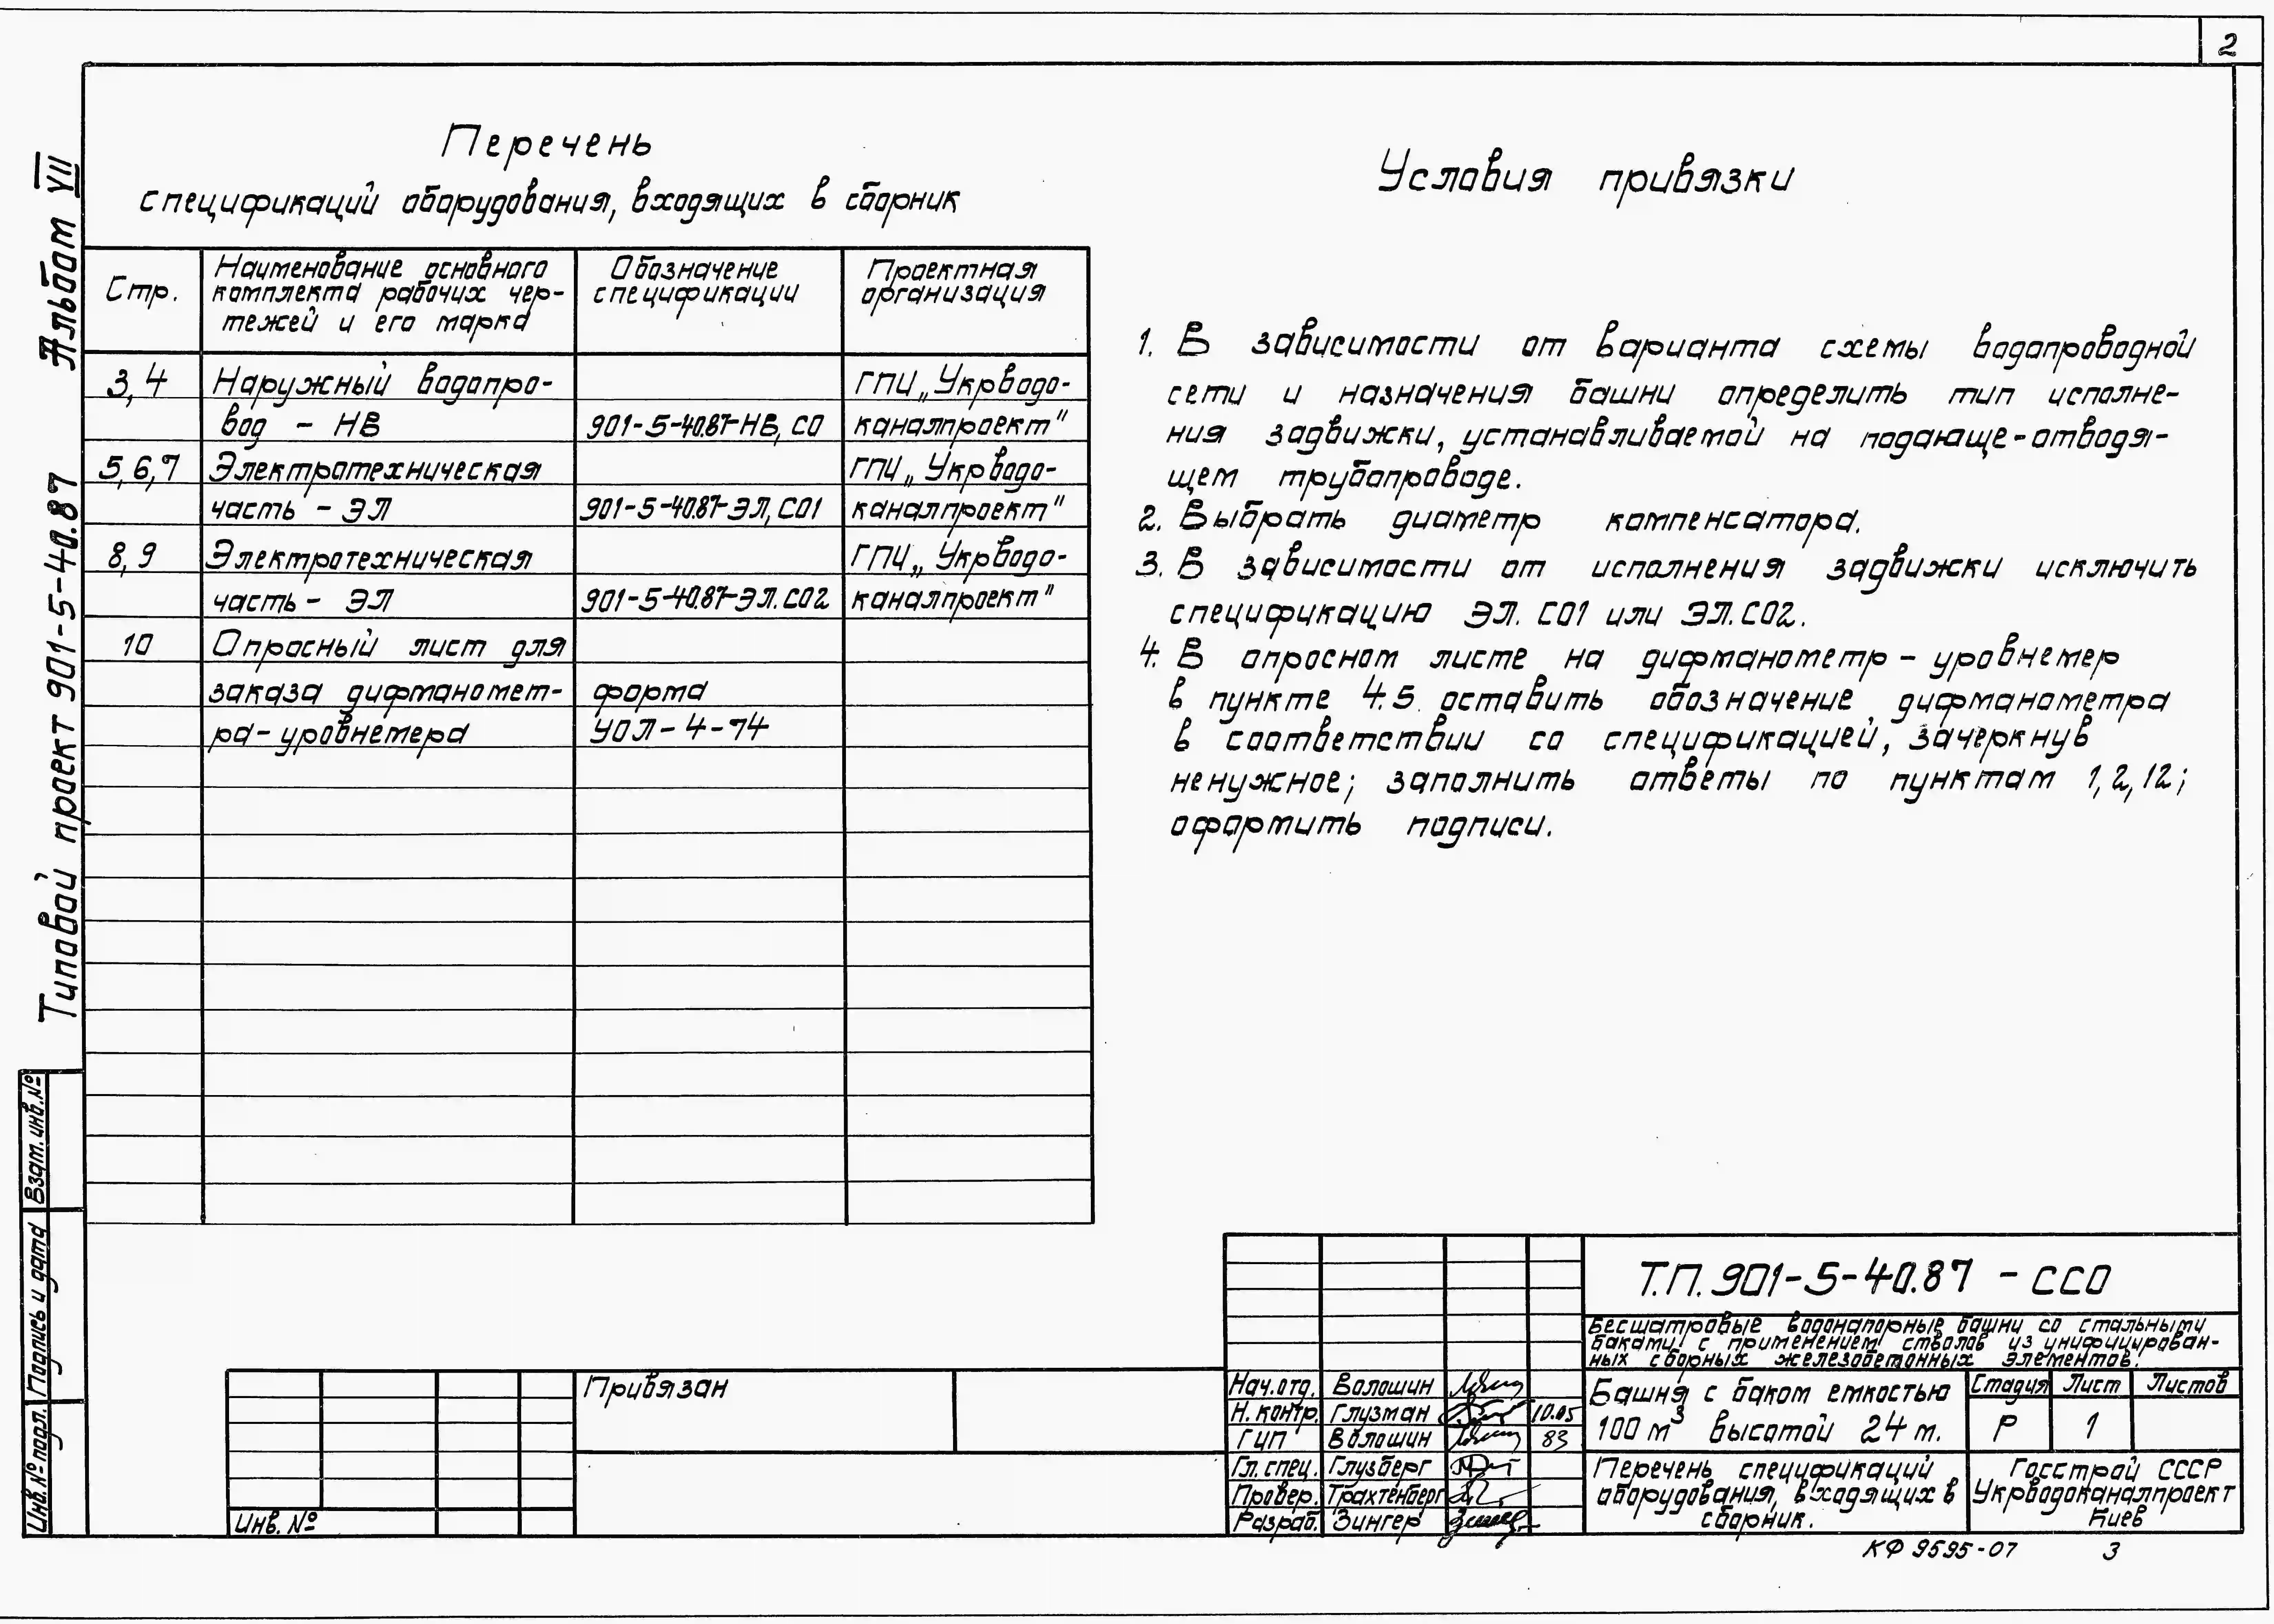 2
Альбом VII
Типовой проект 901-5-40.87
Перечень
спецификаций оборудования, входящих в сборник
Стр.
Наименование основного
комплекта рабочих чер-
тежей и его марка
Обозначение
спецификации
Проектная
организация
3,4
Наружный водопро-
вод - НВ
901-5-40.87-НВ, СО
ГПИ „Укрводо-
каналпроект"
5,6,7
Электротехническая
часть - ЭЛ
901-5-40.87-ЭЛ, СО1
ГПИ „Укрводо-
каналпроект"
8,9
Электротехническая
часть - ЭЛ
901-5-40.87-ЭЛ.СО2
ГПИ „Укрводо-
каналпроект"
10
Опросный лист для
заказа дифманомет-
ра-уровнемера
форма
УОЛ-4-74
Условия привязки
1. В зависимости от варианта схемы водопроводной
сети и назначения башни определить тип исполне-
ния задвижки, устанавливаемой на подающе-отводя-
щем трубопроводе.
2. Выбрать диаметр компенсатора.
3. В зависимости от исполнения задвижки исключить
спецификацию ЭЛ. СО1 или ЭЛ.СО2.
4. В опросном листе на дифманометр - уровнемер
в пункте 4.5 оставить обозначение дифманометра
в соответствии со спецификацией, зачеркнув
ненужное; заполнить ответы по пунктам 1,2,12;
оформить подписи.
Взам. инв. №
Подпись и дата
Инв. № подл.
Инв. №
Привязан
Нач. отд. Волошин
Н. контр. Глузман 10.05
ГИП Волошин 83
Гл. спец. Глузберг
Провер. Трахтенберг
Разраб. Зингер
Т.П. 901-5-40.87 - ССО
Бесшатровые водонапорные башни со стальными
баками с применением стволов из унифицирован-
ных сборных железобетонных элементов.
Башня с баком емкостью
100 м³ высотой 24 м.
Стадия Лист Листов
Р 1
Перечень спецификаций
оборудования, входящих в
сборник.
Госстрой СССР
Укрводоканалпроект
Киев
КФ 9595-07 3